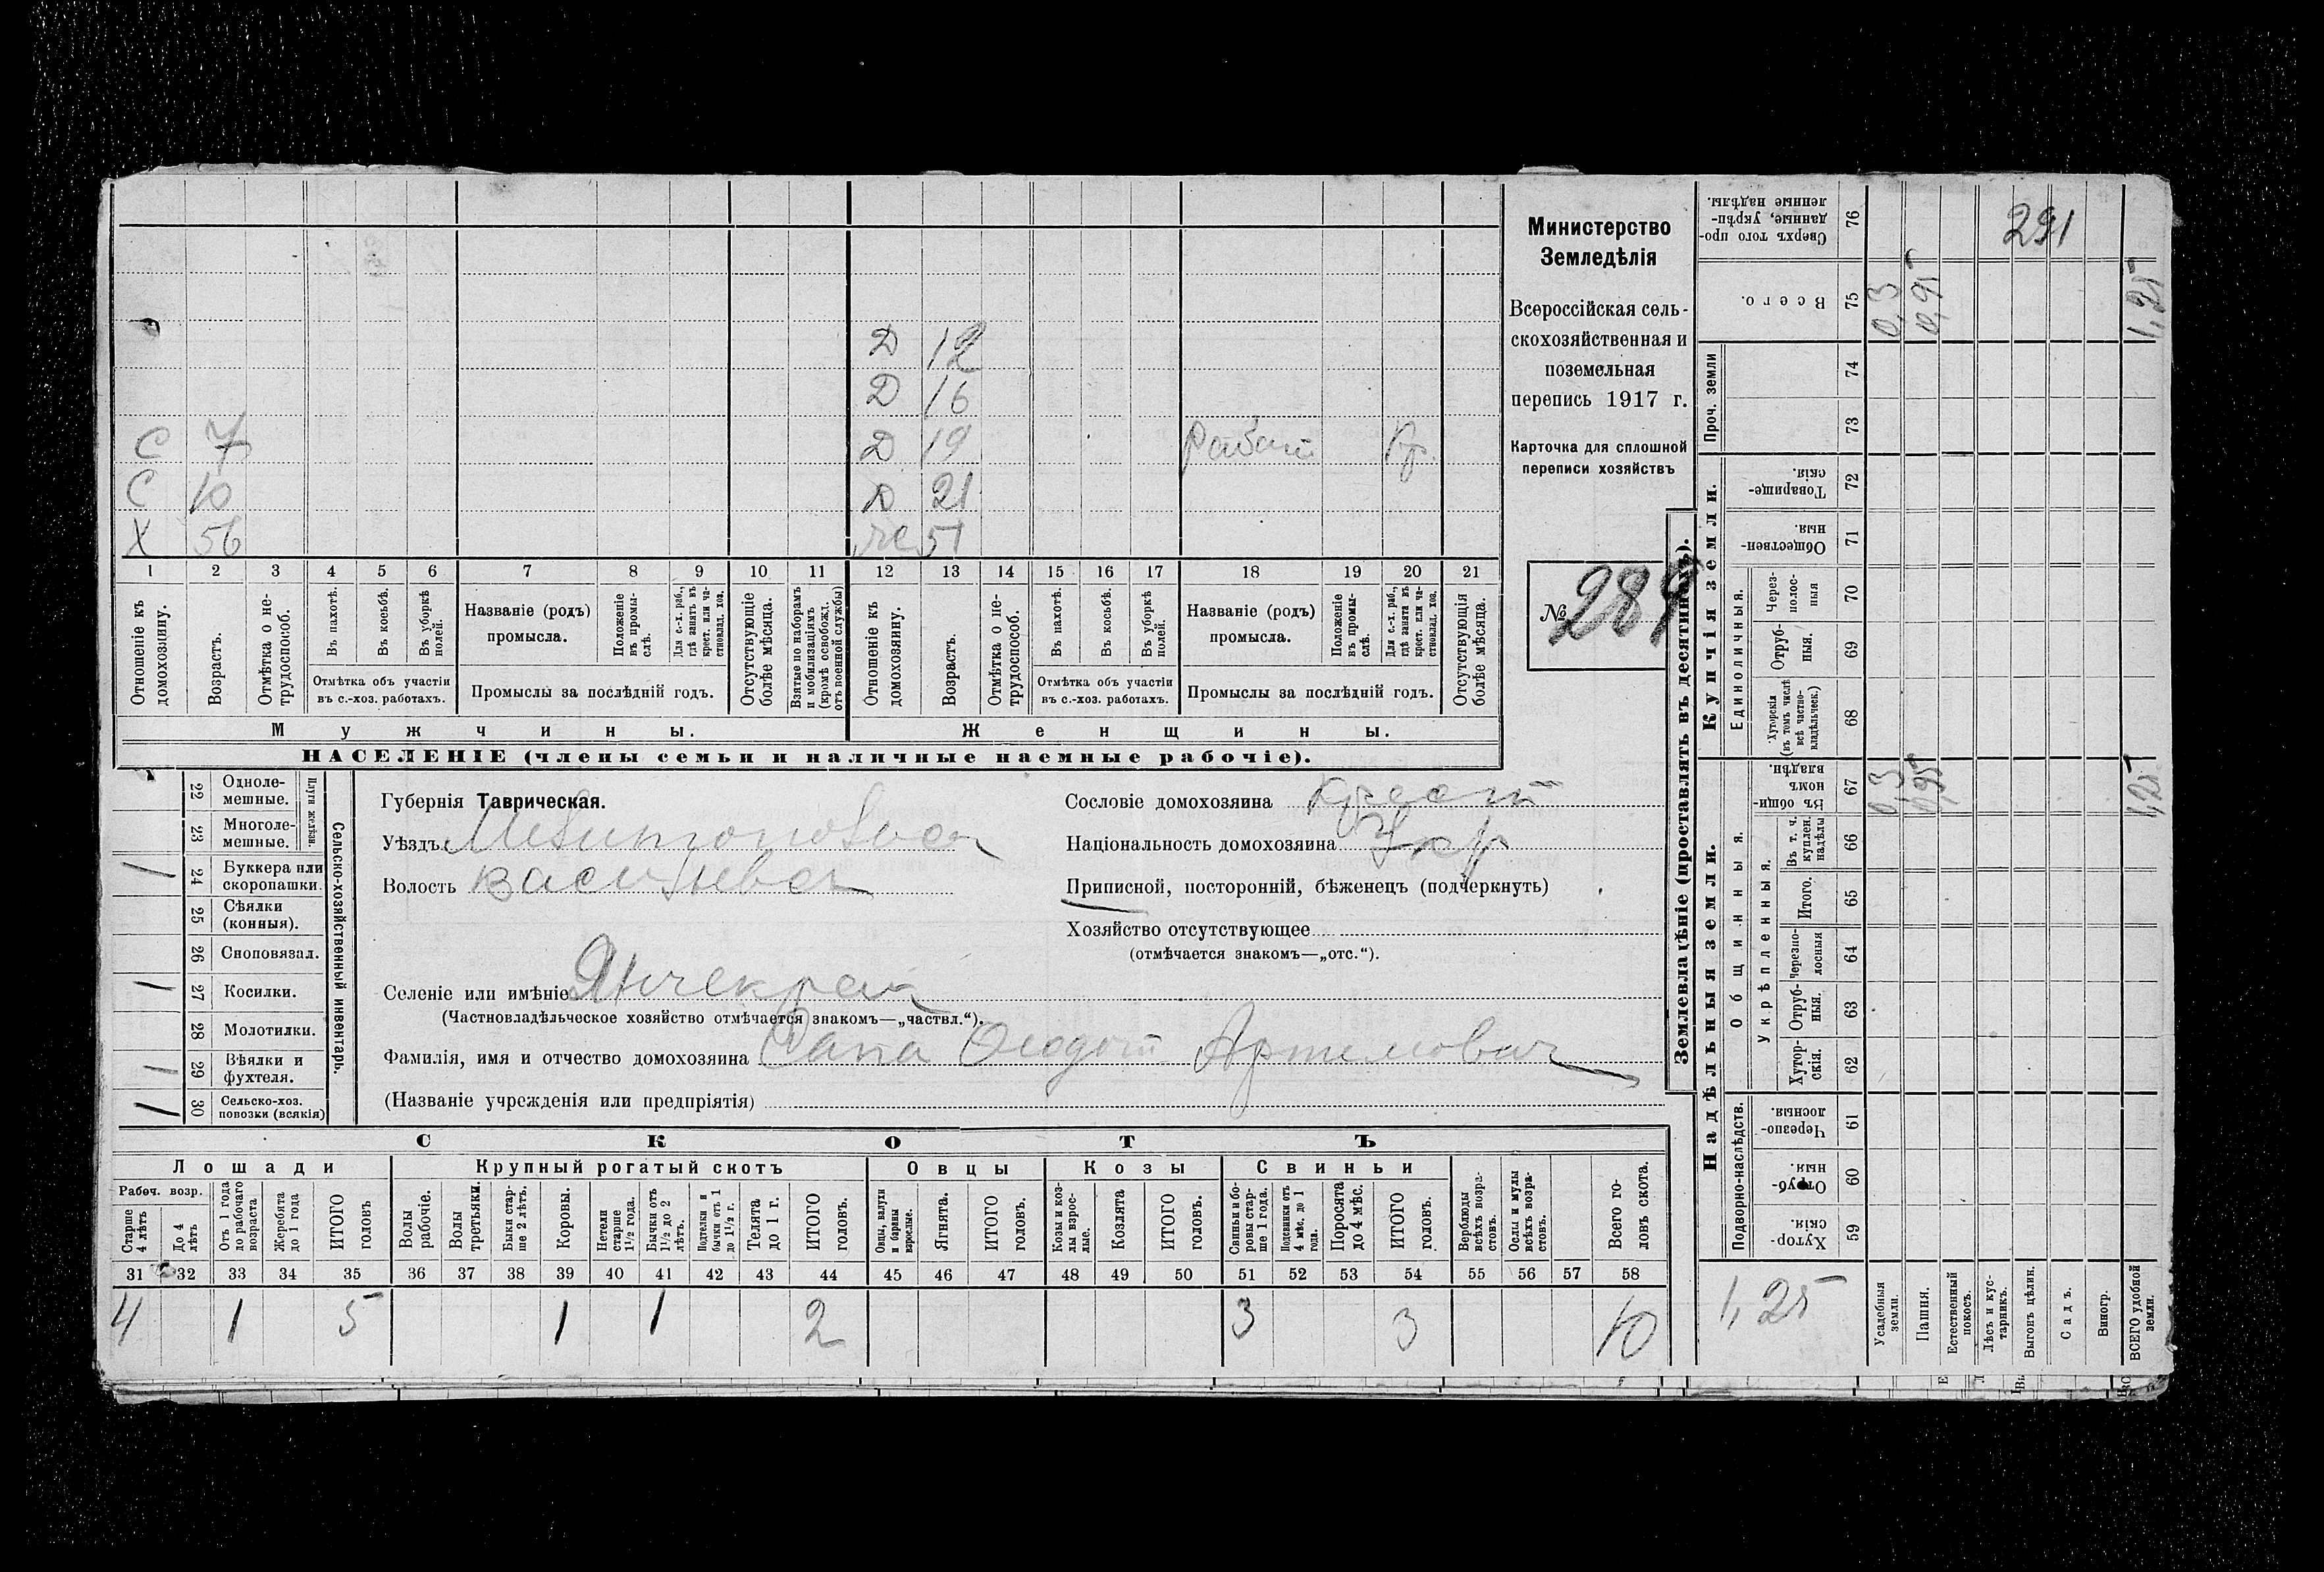 Д 12
Д 16
С 7 Д 19 Работ Кр.
С 10 Д 21
Х 56 Же 51
1 2 3 4 5 6 7 8 9 10 11 12 13 14 15 16 17 18 19 20 21
Отношеніе къ домохозяину.
Возрастъ.
Отмѣтка о не-трудоспособ.
Въ пахотѣ.
Въ косьбѣ.
Въ уборкѣ полей.
Отмѣтка объ участіи
въ с.-хоз. работахъ.
Названіе (родъ)
промысла.
Положеніе въ промы-слѣ.
Для с.-х. раб., гдѣ занятъ въ крест. или ча-стновлад. хоз.
Промыслы за послѣдній годъ.
Отсутствующіе болѣе мѣсяца.
Взятые по наборамъ и мобилизаціямъ (кромѣ освобожд. отъ военной службы)
Отношеніе къ домохозяину.
Возрастъ.
Отмѣтка о не-трудоспособ.
Въ пахотѣ.
Въ косьбѣ.
Въ уборкѣ полей.
Отмѣтка объ участіи
въ с.-хоз. работахъ.
Названіе (родъ)
промысла.
Положеніе въ промы-слѣ.
Для с.-х. раб., гдѣ занята въ крест. или ча-стновлад. хоз.
Промыслы за послѣдній годъ.
Отсутствующія болѣе мѣсяца.
Мужчины. Женщины.
НАСЕЛЕНІЕ (члены семьи и наличные наемные рабочіе).
Министерство
Земледѣлія
Всероссійская сель-
скохозяйственная и
поземельная
перепись 1917 г.
Карточка для сплошной
переписи хозяйствъ
№ 289
Сельско-хозяйственный инвентарь.
Плуги желѣзн.
22 Одноле-
мешные.
23 Многоле-
мешные.
/ 24 Буккера или
скоропашки.
25 Сѣялки
(конныя).
26 Сноповязал.
/ 27 Косилки.
28 Молотилки.
/ 29 Вѣялки и
фухтеля.
/ 30 Сельско-хоз.
повозки (всякія)
Губернія Таврическая.
Уѣздъ Мелитопольск
Волость Васильевск
Селеніе или имѣніе Янчекрак
(Частновладѣльческое хозяйство отмѣчается знакомъ—„частвл.“).
Фамилія, имя и отчество домохозяина Сапа Федот Артемович
(Названіе учрежденія или предпріятія)
Сословіе домохозяина крест
Національность домохозяина Укр
Приписной, посторонній, бѣженецъ (подчеркнуть)
Хозяйство отсутствующее
(отмѣчается знакомъ—„отс.“).
СКОТЪ
Лошади Крупный рогатый скотъ Овцы Козы Свиньи
Рабоч. возр.
Старше 4 лѣтъ
До 4 лѣтъ
Отъ 1 года до рабочаго возраста
Жеребята до 1 года
ИТОГО головъ
Волы рабочіе.
Волы третьяки.
Быки стар-ше 2 лѣтъ.
Коровы.
Нетели старше 1½ года.
Бычки отъ 1½ до 2 лѣтъ.
Подтелки и бычки отъ 1 до 1½ г.
Телята до 1 г.
ИТОГО головъ.
Овцы, валухи и бараны взрослые.
Ягнята.
ИТОГО головъ.
Козы и коз-лы взрос-лые.
Козлята
ИТОГО головъ.
Свиньи и бо-ровы стар-ше 1 года.
Подсвинки отъ 4 мѣс. до 1 года.
Поросята до 4 мѣс.
ИТОГО головъ.
Верблюды всѣхъ возра-стовъ.
Ослы и мулы всѣхъ возра-стовъ.
Всего го-ловъ скота.
31 32 33 34 35 36 37 38 39 40 41 42 43 44 45 46 47 48 49 50 51 52 53 54 55 56 57 58
4 1 5 1 1 2 3 3 10
Землевладѣніе (проставлять въ десятинахъ).
Купчія земли.
Надѣльныя земли.
Сверхъ того про-данные, укрѣп-ленные надѣлы. 76
291
Всего. 75 0,3 0,95 1,25
Проч. земли 74
73
Товарище-скія. 72
Обществен-ныя. 71
Единоличныя.
Через-полос-ныя 70
Отруб-ныя. 69
Хуторскія (въ томъ числѣ всѣ частно-владѣльческ.) 68
Общинныя.
Въ общи-номъ владѣн. 67 0,3 0,95 1,25
Укрѣпленныя.
Въ т. ч. куплен. надѣлы 66
Итого. 65
Черезпо-лосныя 64
Отруб-ныя. 63
Хутор-скія. 62
Подворно-наслѣдств.
Черезпо-лосныя. 61
Отруб-ныя. 60
Хутор-скія. 59
1,25
Усадебныя земли.
Пашня.
Естественный покосъ.
Лѣсъ и кус-тарникъ.
Выгонъ цѣлин.
Садъ.
Виногр.
ВСЕГО удобной земли.